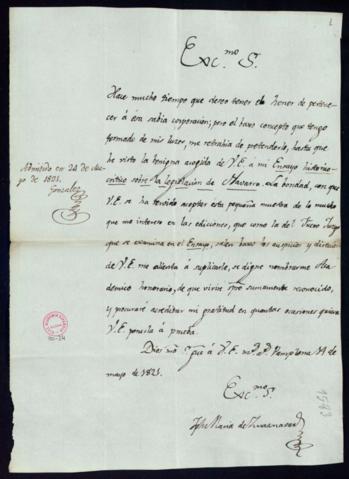 Exc.mo S.
Hace mucho tiempo que deseo tener el honor de pertene-
cer á esa sabia corporacion; pero el baxo concepto que tengo
formado de mis luces, me retrahia de pretenderlo, hasta que
he visto la benigna acogida de V.E. á mi Ensayo historico
critico sobre la legislacion de Navarra. La bondad, con que
V.E. se ha servido aceptar esta pequeña muestra de lo mucho
que me intereso en las ediciones, que como la del Fuero Juzgo
que se examina en el Ensayo, salen baxo los auspicios y direccion
de V.E. me alienta á suplicarle, se digne nombrarme Aca-
demico honorario, de que vivire sumamente reconocido,
y procuraré acreditar mi gratitud en quantas ocasiones quiera
V.E. ponerla á prueba.
Dios á V.E. m.s a.s Pamplona 14 de
mayo de 1821.
Exc.mo S.
José Maria de Zuaznavar
Admitido en 24 de
de 1821.
Gonzalez
1543